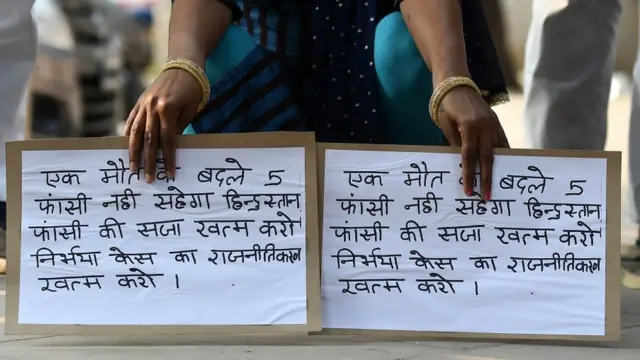 एक मौत के बदले 5
फांसी नही सहेगा हिन्दुस्तान
फांसी की सजा खत्म करो
निर्भया केस का राजनीतिकरण
खत्म करो ।
एक मौत के बदले 5
फांसी नही सहेगा हिन्दुस्तान
फांसी की सजा खत्म करो
निर्भया केस का राजनीतिकरण
खत्म करो ।